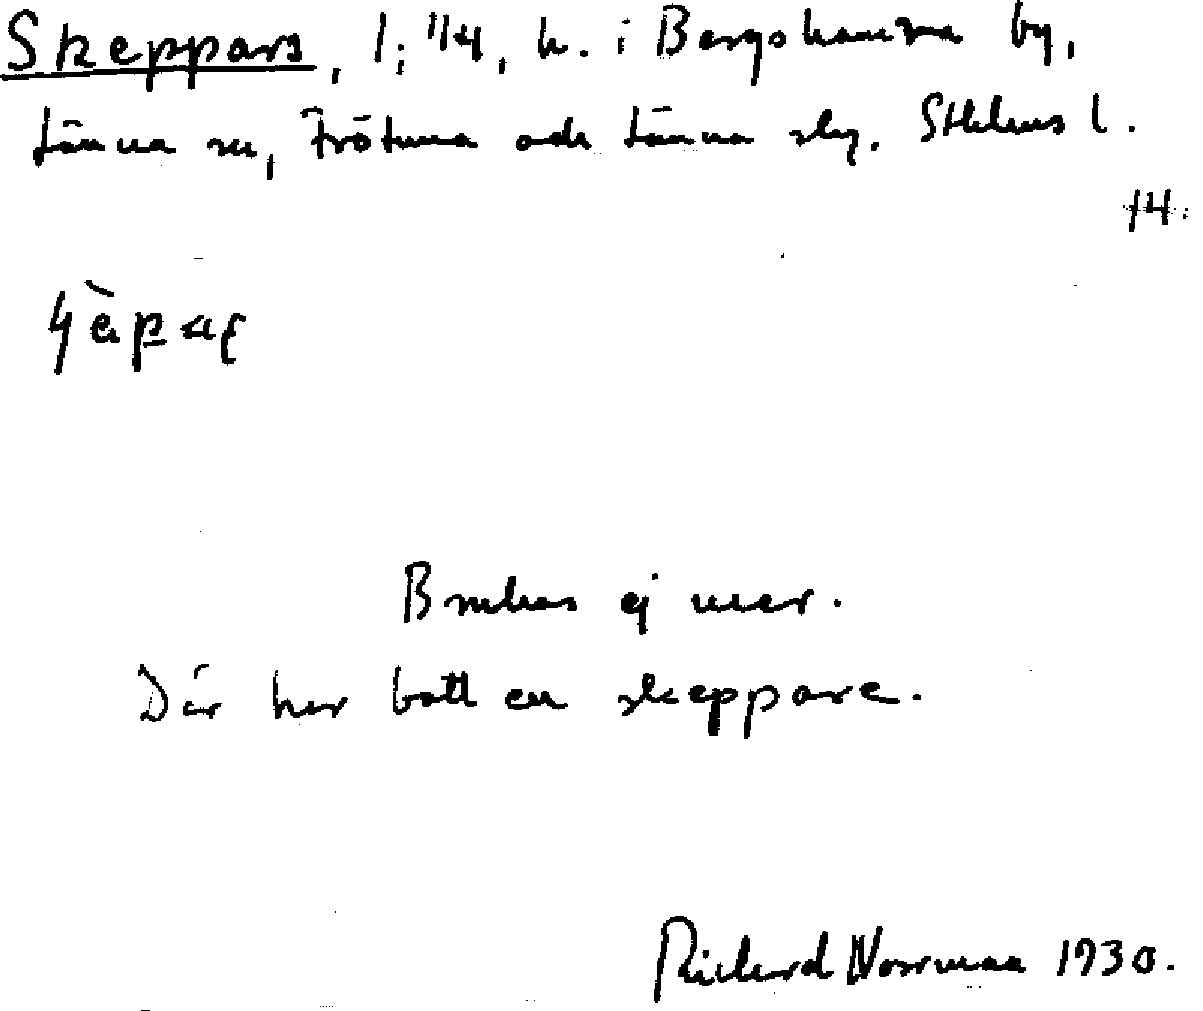 Skeppars, 1; 1/4, h. i Bergshamra by,
Länna sn, Frötuna och Länna slg. Sthlms l.
14.
Brukas ej mer.
Där har bott en skeppare.
Richard Norrman 1930.